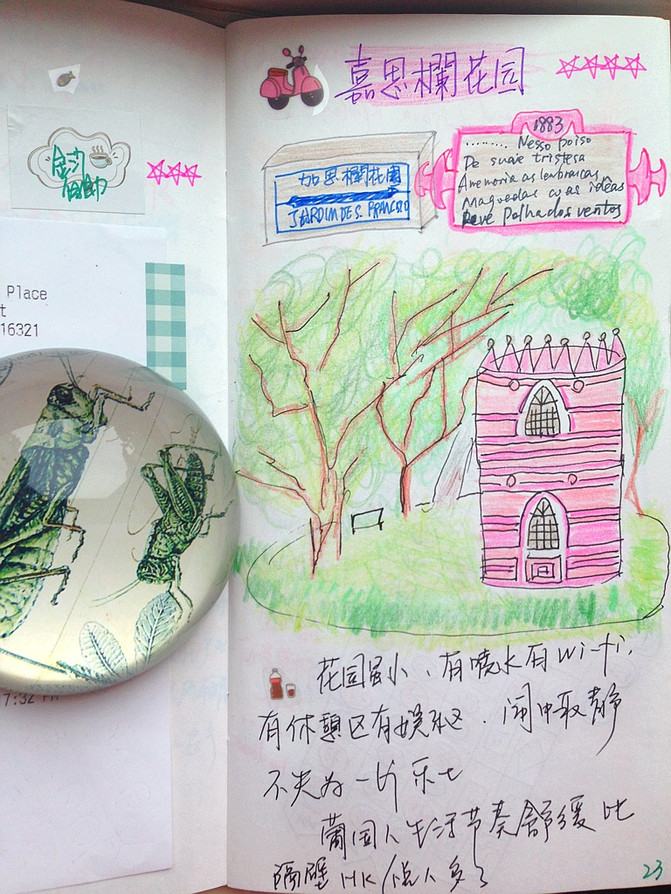 金沙
Place
t
16321
7:32 P
嘉思欄花园
加思欄花園
JARDIM DE S. FRANCISCO
1883
......... Nesso poiso
De suave tristesa
Anemoria as lembrancas
Maguedas cvas idéas
Revé Polhados ventos
花园虽小、有喷水有Wi-fi,
有休憩区有娱乐区. 闹中取静
不失为一片乐土
葡国人生活节奏舒缓 比
隔壁 HK 惬人多了
23